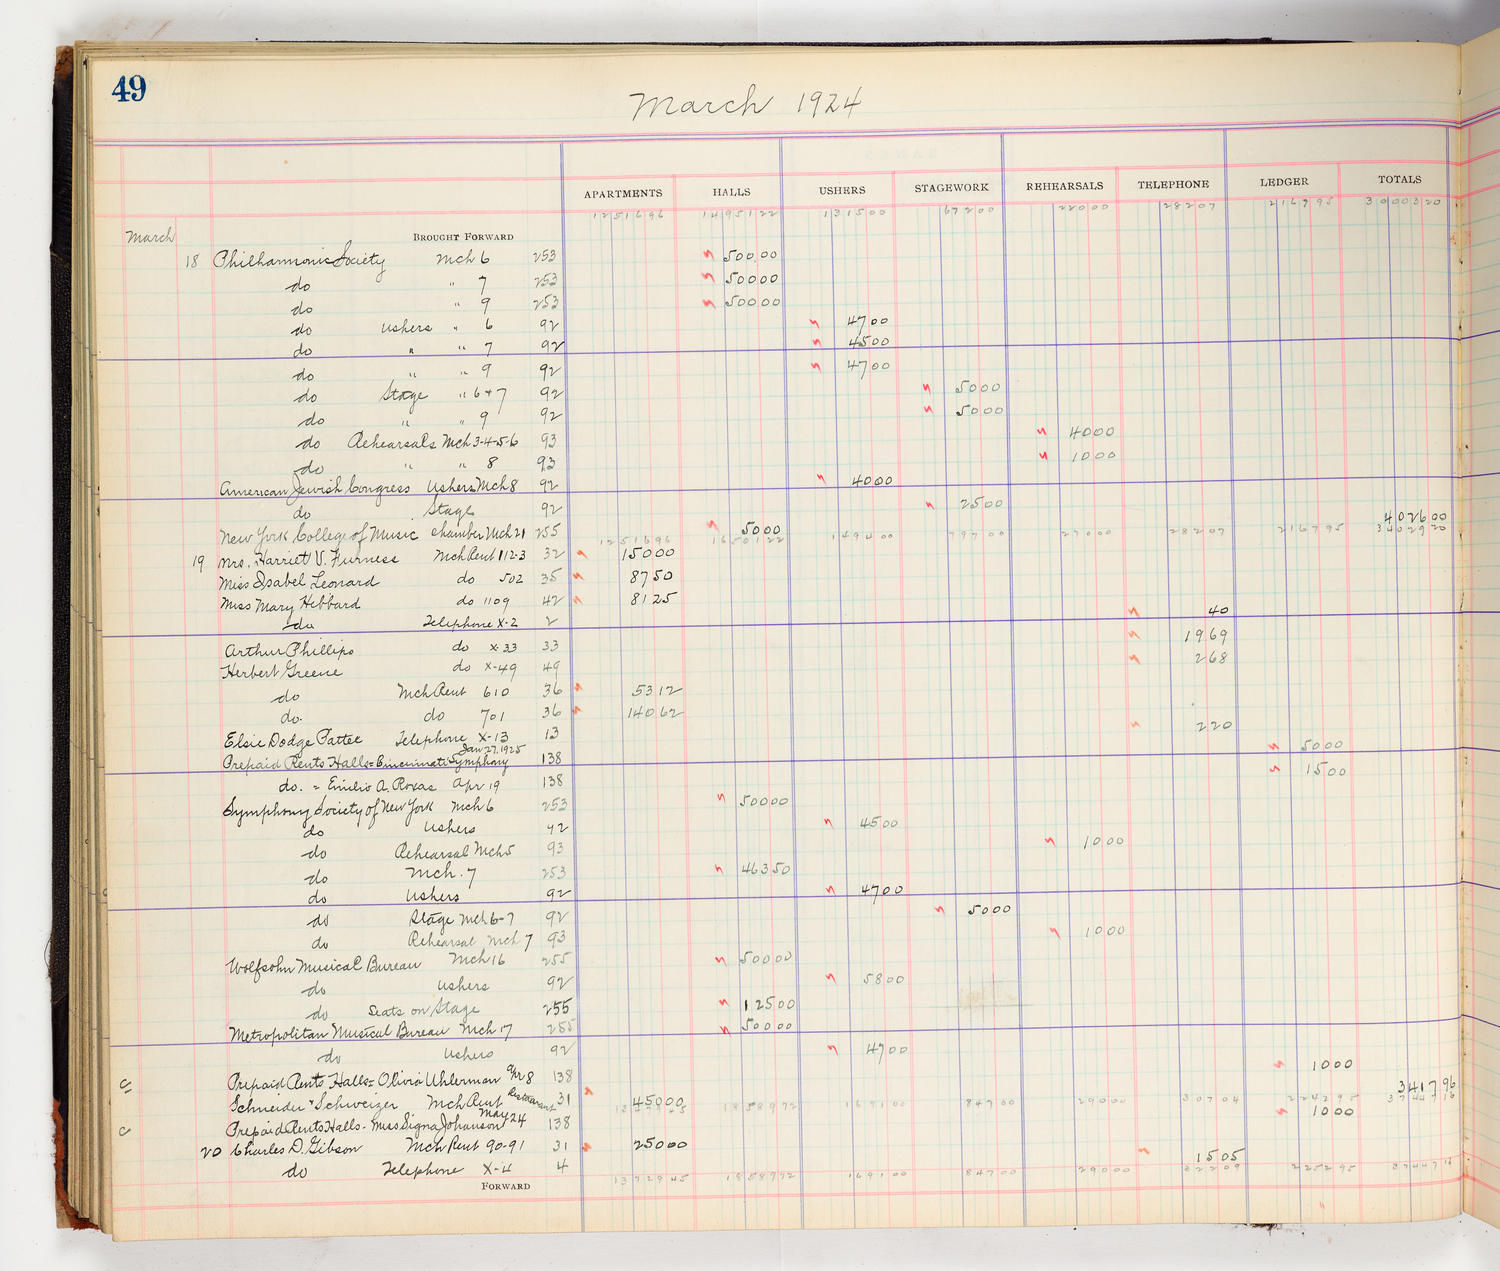 49
March 1924
APARTMENTS HALLS USHERS STAGEWORK REHEARSALS TELEPHONE LEDGER TOTALS
1251696 1495122 131500 67200 22000 28207 216795 3000320
March BROUGHT FORWARD
18 Philharmonic Society Mch 6 253 50000
do " 7 253 50000
do " 9 253 50000
do Ushers " 6 92 4700
do " " 7 92 4500
do " " 9 92 4700
do Stage " 6+7 92 5000
do " " 9 92 5000
do Rehearsals Mch 3-4-5-6 93 4000
do " " 8 93 1000
American Jewish Congress Ushers Mch 8 92 4000
do Stage 92 2500
New York College of Music Chamber Mch 21 255 5000 402600
1251696 1650122 149400 79700 27000 28207 216795 3402920
19 Mrs. Harriet V. Furness Mch Rent 112-3 32 15000
Miss Isabel Leonard do 502 35 8750
Miss Mary Hebbard do 1109 42 8125
do Telephone X-2 2 40
Arthur Phillips do X-33 33 1969
Herbert Greene do X-49 49 268
do Mch Rent 610 36 5312
do. do 701 36 14062
Elsie Dodge Pattee Telephone X-13 13 220
Jan 27, 1925
Prepaid Rents Halls = Cincinnati Symphony 138 5000
do. = Emilio A. Roxas Apr 19 138 1500
Symphony Society of New York Mch 6 253 50000
do Ushers 92 4500
do Rehearsal Mch 5 93 1000
do Mch. 7 253 46350
do Ushers 92 4700
do Stage Mch 6-7 92 5000
do Rehearsal Mch 7 93 1000
Wolfsohn Musical Bureau Mch 16 255 50000
do Ushers 92 5800
do Seats on Stage 255 12500
Metropolitan Musical Bureau Mch 17 255 50000
do Ushers 92 4700
Prepaid Rents Halls = Olivia Uhlerman Apr 8 138 1000
Schneider & Schweizer Mch Rent Restaurant 31 45000 341796
1858972 169100 84700 29000 30704 224295 3744716
Prepaid Rents Halls - Miss Signa Johanson May 24 138 1000
20 Charles D. Gibson Mch Rent 90-91 31 25000
do Telephone X-4 4 1505
FORWARD 1372945 1858972 169100 84700 29000 32209 225295